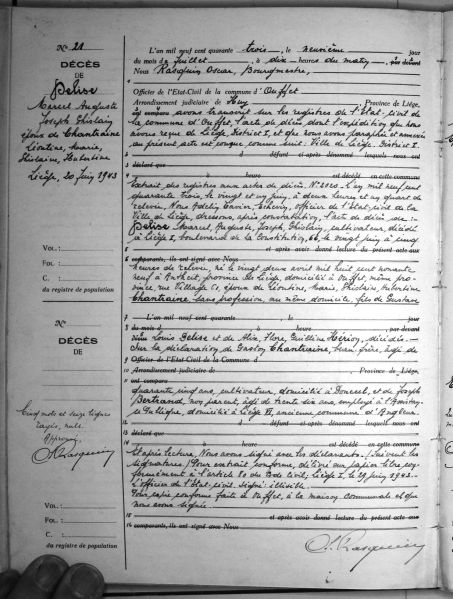 N° 21
DÉCÈS
DE
Delise
Marcel Auguste
Joseph Ghislain
époux de Chantraine
Léontine, Marie,
Ghislaine, Hubertine
Liège, 20 Juin 1943
VOL :
FOL :
C. :
du registre de population
L'an mil neuf cent quarante trois, le neuvième jour
du mois de Juillet, à dix heures du matin, par devant
Nous Rasquin Oscar, Bourgmestre,
Officier de l'Etat-Civil de la commune d'Ouffet
Arrondissement judiciaire de Huy Province de Liège,
ont comparu avons transcrit sur les registres de l'Etat-civil de
la commune d'Ouffet, l'acte de décès, dont l'expédition que nous
avons reçue de Liège, District I, et que nous avons paraphée et annexée
au présent acte est conçue comme suit: Ville de Liège. District I.
défunt et après dénommé lesquels nous ont
déclaré que
à heure est décédé en cette commune
Extrait des registres aux actes de décès. N° 2020. L'an mil neuf cent
quarante trois, le vingt et un juin, à deux heures et un quart de
relevée, Nous officier de l'Etat-civil de la
Ville de Liège, dressons, après constatation, l'acte de décès de:
Delise Marcel, Auguste, Joseph, Ghislain, cultivateur, décédé
à Liège I, boulevard de la Constitution, 66, le vingt juin à cinq
et après avoir donné lecture du présent acte aux
comparants, ils ont signé avec Nous
heures de relevée, né le vingt deux avril mil huit cent nonante
neuf à Antheit, province de Liège, domicilié à Ouffet, même pro-
vince, rue Village époux de Léontine, Marie, Ghislaine, Hubertine
Chantraine, sans profession, au même domicile, fils de Gustave
N°
DÉCÈS
DE
Cinq mots et seize lignes
rayés, nuls.
Approuvé.
O Rasquin
VOL :
FOL :
C. :
du registre de population
L'an mil neuf cent quarante, le jour
du mois d, à heure, par devant
Louis Delise et de Alix, Flore, Guilline Hérion, décédés.-
Sur la déclaration de Gaston Chantraine, beau-frère, âgé de
Officier de l'Etat-Civil de la Commune d
Arrondissement judiciaire de Province de Liège,
ont comparu
quarante cinq ans, cultivateur, domicilié à Donceel, et de Joseph
Bertrand, non parent, âgé de trente six ans, employé à l'
domicilié à Liège VI, ancienne commune d'Angleur.
défunt et après dénommé lesquels nous ont
déclaré que
à heure est décédé en cette commune
Et après lecture, Nous avons signé avec les déclarants. (Suivent les
signatures) Pour extrait conforme, délivré sur papier libre, con-
formément à l'article du code civil; Liège I, le 29 juin 1943.
L'Officier de l'Etat-civil. Signé: illisible.
Pour copie conforme faite à Ouffet, à la maison communale et que
nous avons signée.
et après avoir donné lecture du présent acte aux
comparants, ils ont signé avec Nous
O. Rasquin